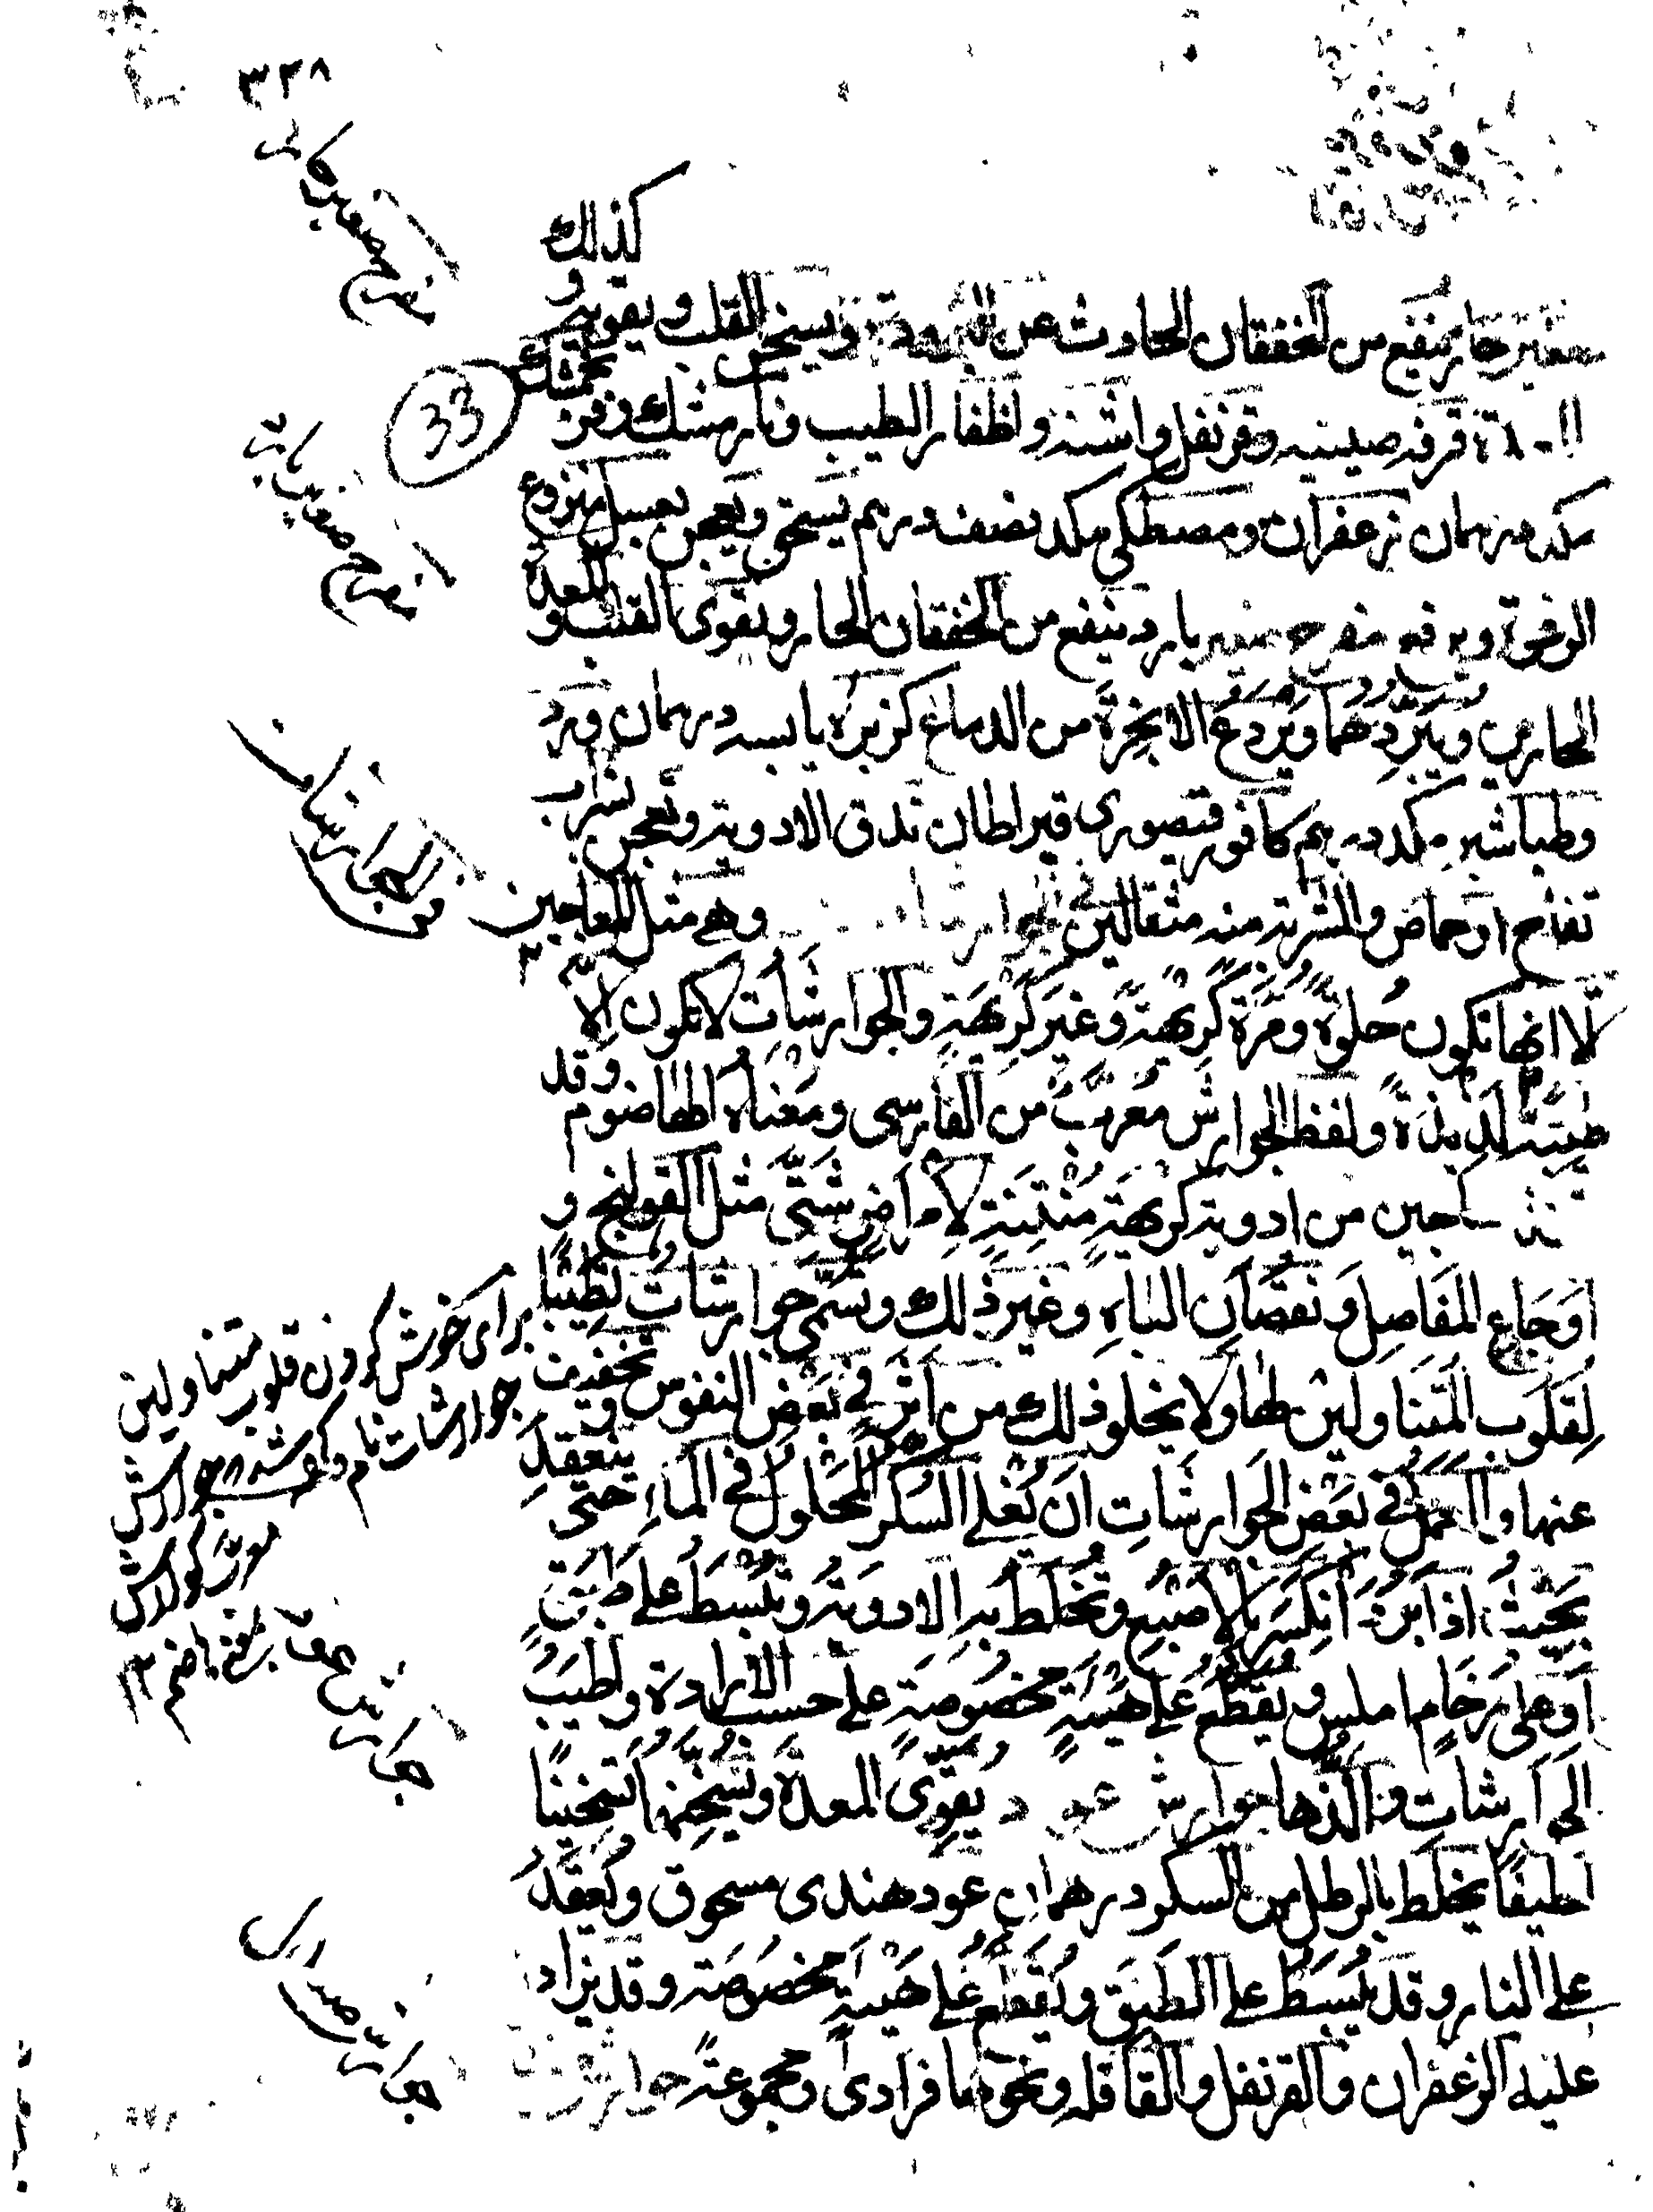 ٣٢٨
كذلك
صغير حار ينفع من الخفقان الحادث عن البرودة ويسخن القلب ويقويه و
قرفه صينيه وقرنفل واشنه واظفار الطيب ونارمشك وفرنجمشك
مكد درهمان زعفران ومصطكى مكد نصف درهم يسحق ويعجن بعسل منزوع
الرغوة ويرفع مفرح صغير بارد ينفع من الخفقان الحار ويقوى القلب والمعدة
الحارين ويبردهما ويردع الابخرة من الدماغ كزبره يابسه درهمان ورد
وطباشير مكد درهم كافور قيصورى قيراطان تدق الادوية وتعجن بشراب
تفاح او حماض والشربة منه مثقالين فى الجوارشات وهى مثل المعاجين
الا انها تكون حلوة ومرة كريهة وغير كريهة والجوارشات لا تكون الا
طيبة لذيذة ولفظ الجوارش معرب من الفارسى ومعناه الهاضوم وقد
معاجين من ادوية كريهة منتنة لامراض شتى مثل القولنج و
اوجاع المفاصل ونقصان الباه وغير ذلك وتسمى جوارشات تطييبا
لقلوب المتناولين لها ولا يخلو ذلك من اثر فى بعض النفوس و تخفيف
عنها والعمل فى بعض الجوارشات ان يغلى السكر المحلول فى الماء حتى ينعقد
بحيث اذا برد انكسر بالاصبع وتخلط به الادوية وتبسط على طبق
او على رخام املس ويقطع على هيئة مخصوصة على حسب الارادة واطيب
الجوارشات والذها جوارش عود يقوى المعدة وتسخنها تسخينا
لطيفا يخلط بالرطل من السكر درهمان عود هندى مسحوق ويعقد
على النار وقد يبسط على الطبق ويقطع على هيئة مخصوصة وقد يزاد
عليه الزعفران والقرنفل والقاقله ونحوها فرادى ومجموعة جوارش
33
فى الجوارشات
براى خوش كردن قلوب متناولين
جوارشات نام كرده شد جوارش
معرب كوارش
بمعنى هاضم ١٢
جوارش عود
جوارش صندل